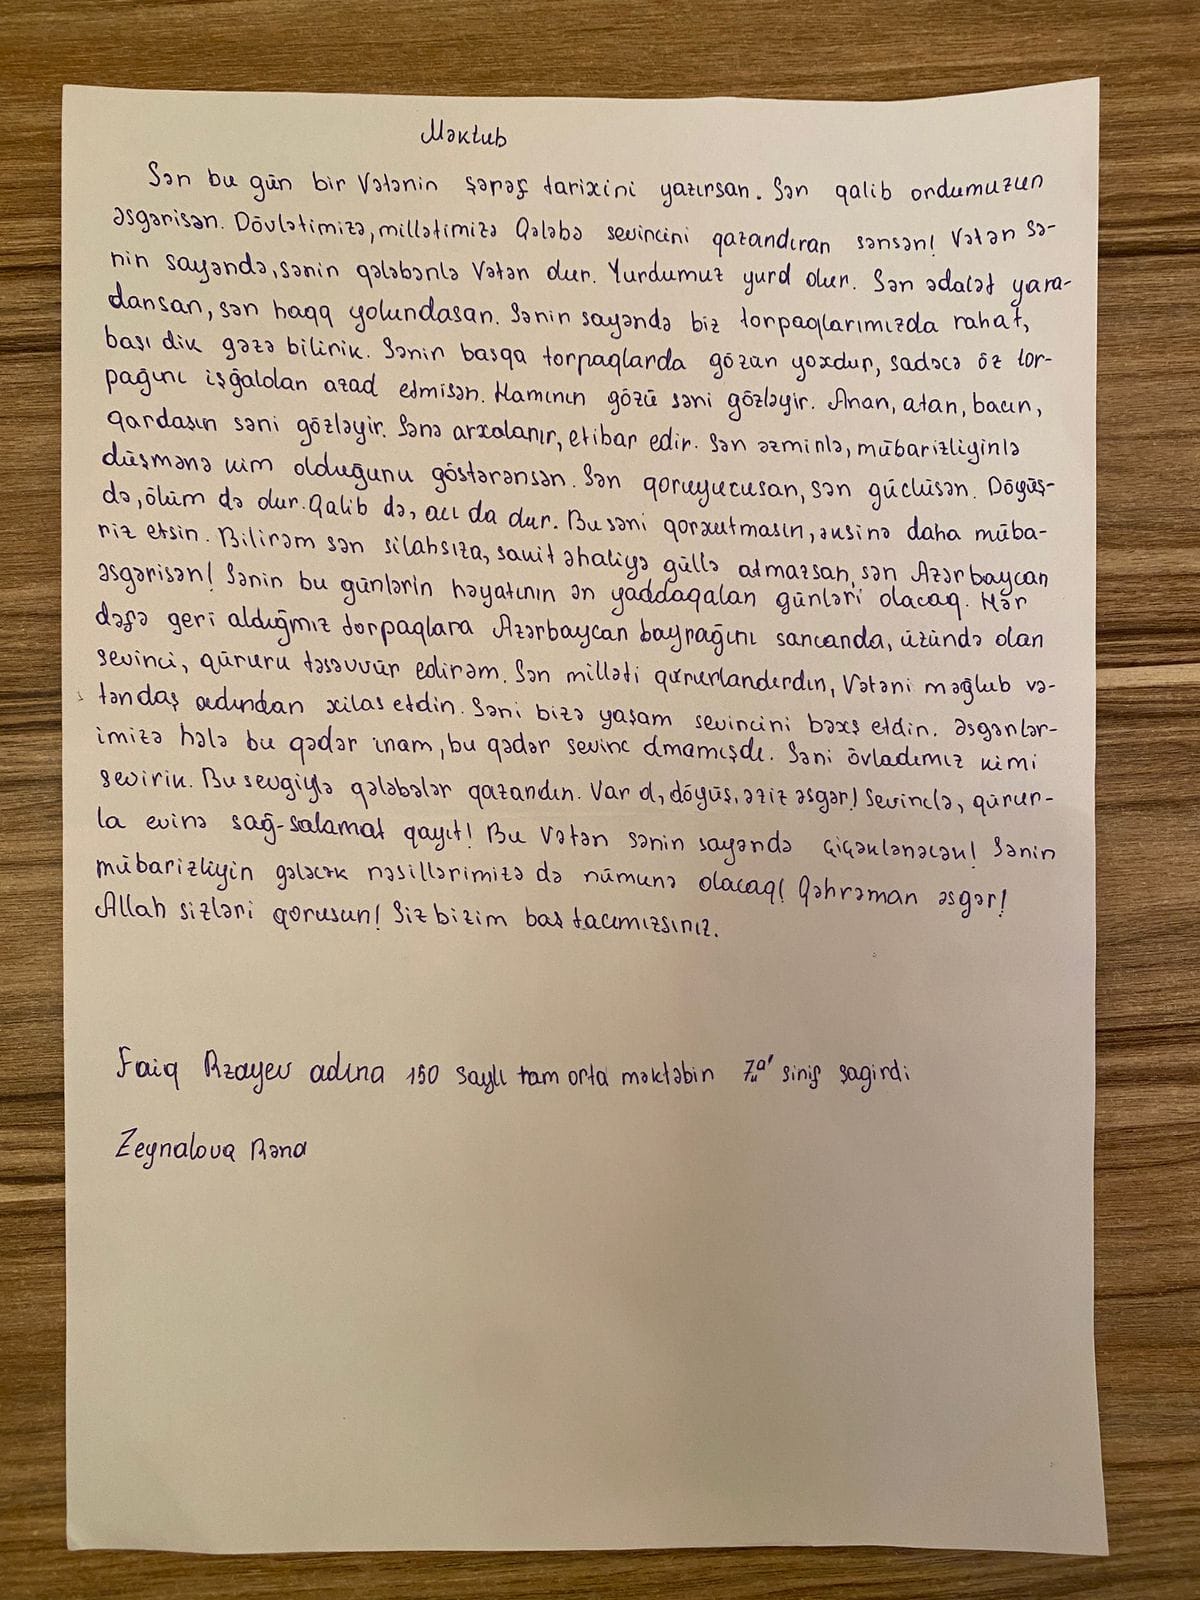 Məktub
Sən bu gün bir Vətənin şərəf tarixini yazırsan. Sən qalib ordumuzun
əsgərisən. Dövlətimizə, millətimizə Qələbə sevincini qazandıran sənsən! Vətən sə-
nin sayəndə, sənin qələbənlə Vətən olur. Yurdumuz yurd olur. Sən ədalət yara-
dansan, sən haqq yolundasan. Sənin sayəndə biz torpaqlarımızda rahat,
başı dik gəzə bilirik. Sənin başqa torpaqlarda gözün yoxdur, sadəcə öz tor-
pağını işğaldan azad etmisən. Hamının gözü səni gözləyir. Anan, atan, bacın,
qardaşın səni gözləyir. Sənə arxalanır, etibar edir. Sən əzminlə, mübarizliyinlə
düşmənə kim olduğunu göstərənsən. Sən qoruyucusan, sən güclüsən. Döyüş-
də, ölüm də olur. Qalib də, acı da olur. Bu səni qorxutmasın, əksinə daha müba-
riz etsin. Bilirəm sən silahsıza, sakit əhaliyə güllə atmazsan, sən Azərbaycan
əsgərisən! Sənin bu günlərin həyatının ən yaddaqalan günləri olacaq. Hər
dəfə geri aldığmız torpaqlara Azərbaycan bayrağını sancanda, üzündə olan
sevinci, qüruru təsəvvür edirəm. Sən milləti qürurlandırdın, Vətəni məğlub və-
təndaş adından xilas etdin. Səni bizə yaşam sevincini bəxş etdin. Əsgərlər-
imizə hələ bu qədər inam, bu qədər sevinc olmamışdı. Səni övladımız kimi
sevirik. Bu sevgiylə qələbələr qazandın. Var ol, döyüş, əziz əsgər! Sevinclə, qürur-
la evinə sağ-salamat qayıt! Bu Vətən sənin sayəndə çiçəklənəcək! Sənin
mübarizliyin gələcək nəsillərimizə də nümunə olacaq! Qəhrəman əsgər!
Allah sizləri qorusun! Siz bizim baş tacımızsınız.
Faiq Rzayev adına 150 saylı tam orta məktəbin 7"a" sinif şagirdi
Zeynalova Rəna